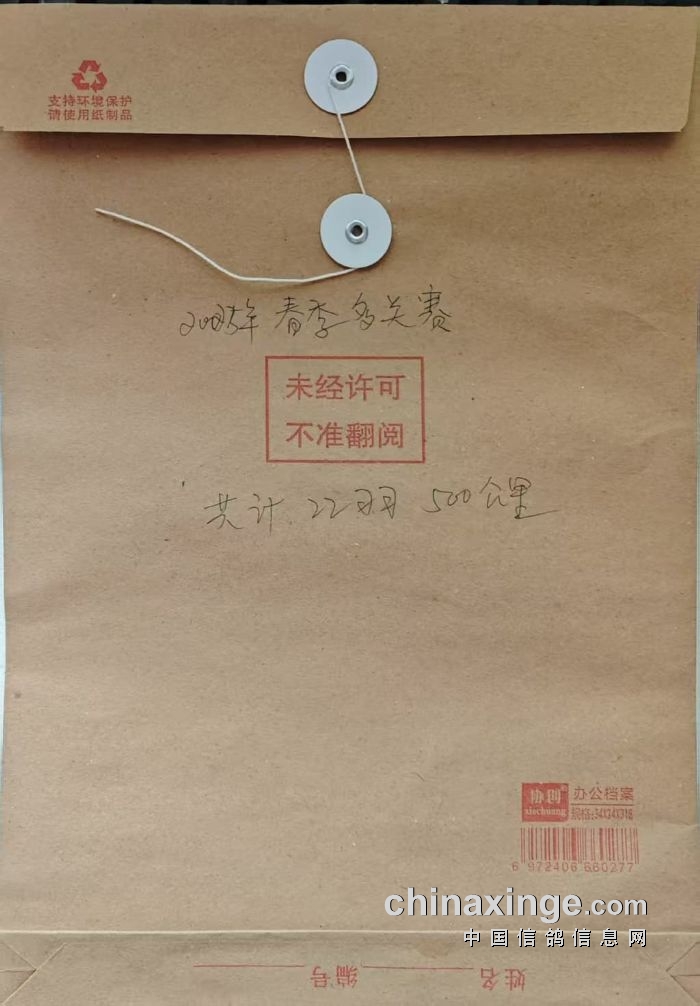 支持环境保护
请使用纸制品
春季多关赛
未经许可
不准翻阅
共计 22羽 500公里
协创®
xiechuang
办公档案
规格:34X24X31.8
6 972406 660277
chinaxinge.com
中国信鸽信息网
姓名 编号